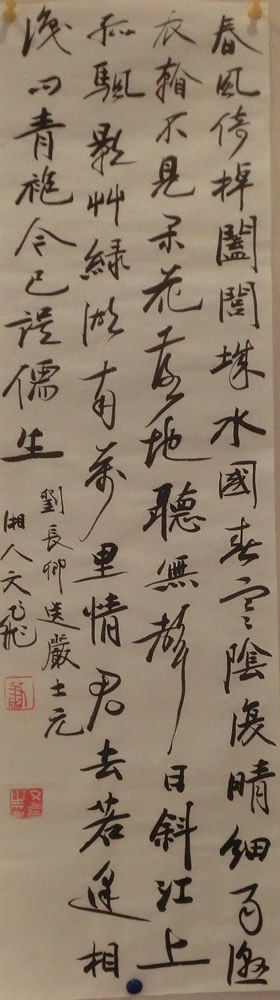 春風倚棹闔閭城水國春寒陰復晴細雨溼
衣看不見閑花落地聽無聲日斜江上
孤颿影艸綠湖南萬里情君去若逢相
識問青袍今已誤儒生
劉長卿送嚴士元
湘人文飛